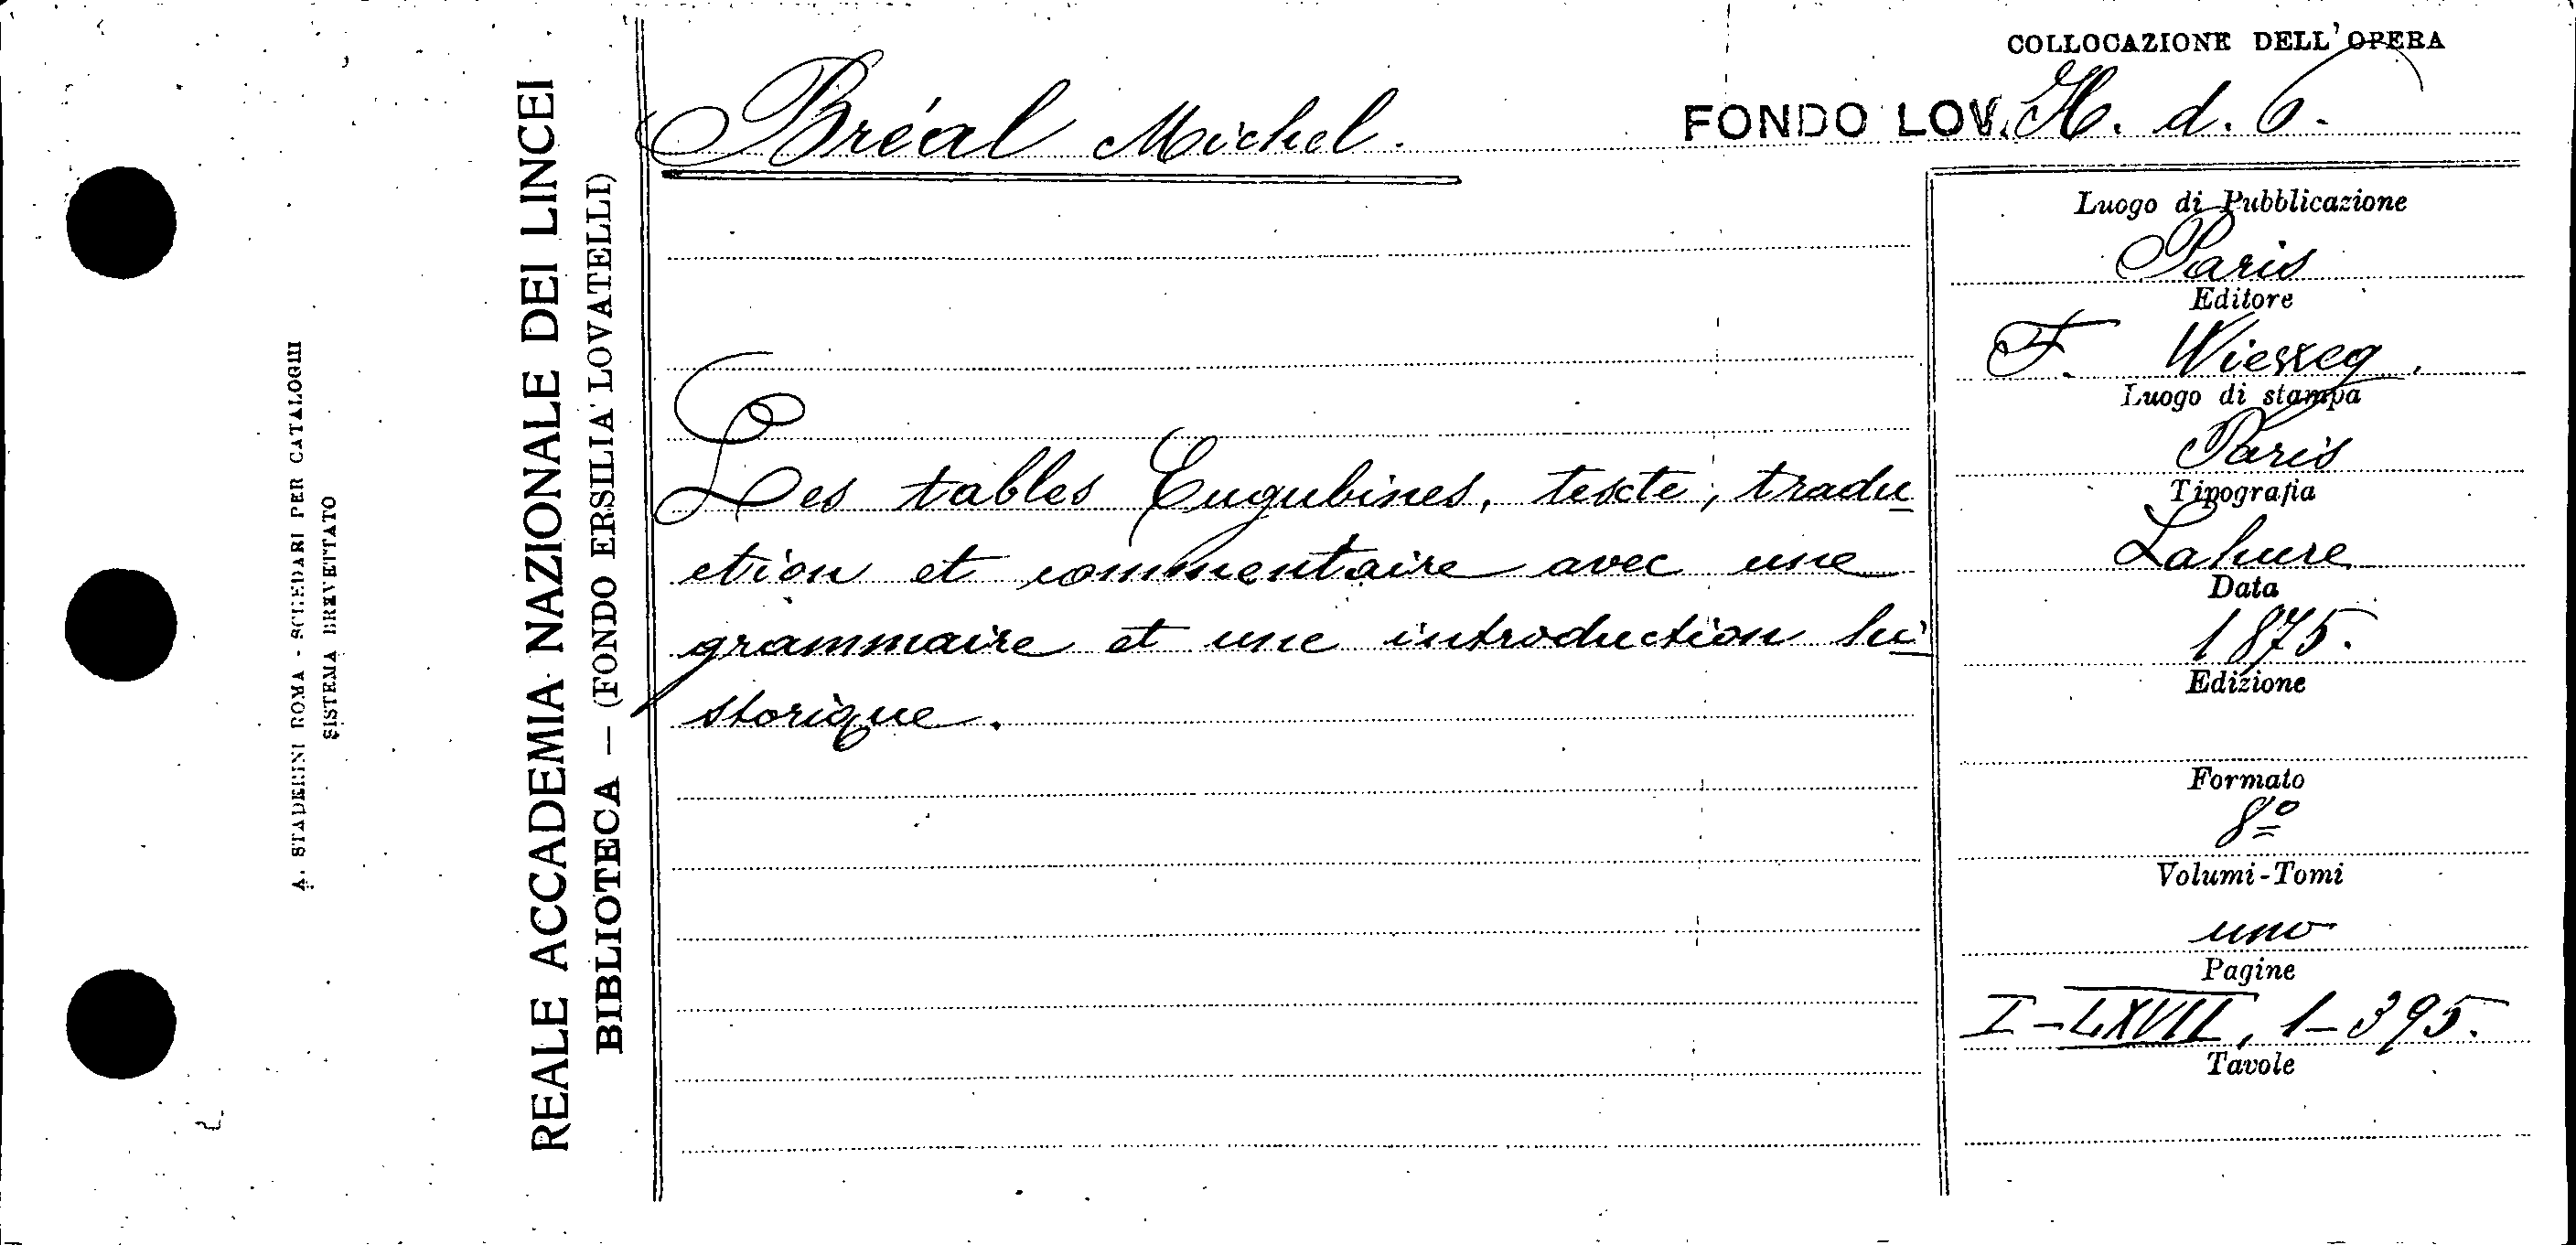 A. STADERINI ROMA - SCHEDARI PER CATALOGHI
SISTEMA BREVETTATO
REALE ACCADEMIA NAZIONALE DEI LINCEI
BIBLIOTECA — (FONDO ERSILIA LOVATELLI)
COLLOCAZIONE DELL'OPERA
Bréal Michel.
FONDO LOV. H. d. 6.
Les tables Eugubines, texte, tradu
ction et commentaire avec une
grammaire et une introduction hi
storique.
Luogo di Pubblicazione
Paris
Editore
F. Wieweg.
Luogo di stampa
Paris
Tipografia
Lahure
Data
1875.
Edizione
Formato
8º
Volumi-Tomi
uno
Pagine
I-LXVII, 1-395.
Tavole